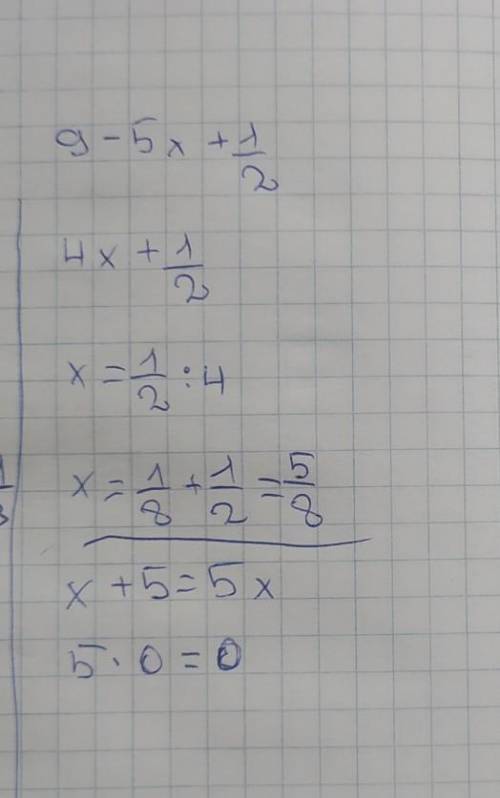 9 - 5x + 1/2
4x + 1/2
x = 1/2 : 4
x = 1/8 + 1/2 = 5/8
x + 5 = 5x
5 · 0 = 0